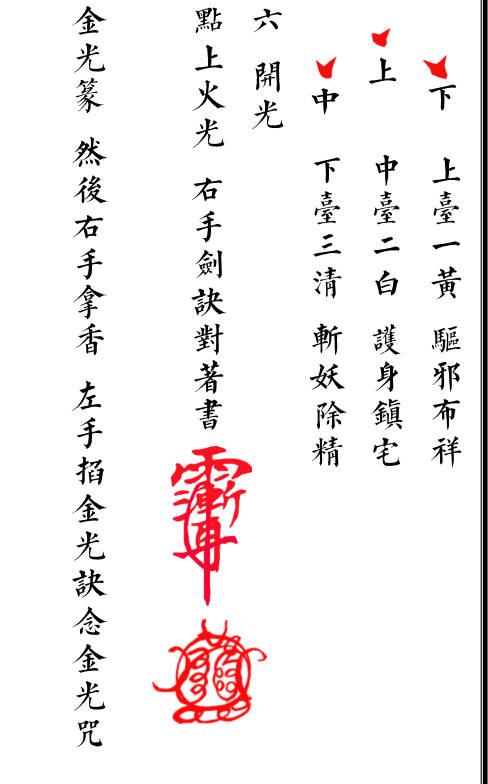 下 上臺一黃 驅邪布祥
上 中臺二白 護身鎮宅
中 下臺三清 斬妖除精
六 開光
點上火光 右手劍訣對著書
金光篆 然後右手拿香 左手掐金光訣念金光咒